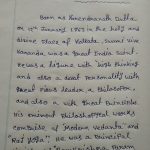 Born as Narendranath Dutta
on 12th January 1863 in the holy and
divine place of Kolkata, Swami Vive
Kananda was a great Indian Saint.
He was a figure with high thinking
and also a great Personality with
great vision leader, a Philosopher,
and also a with great Principles
His eminent Philosophical works
comprise of Modern Vedanta and
"Raj Yoga". He was a Principal
Ramkrishna Param